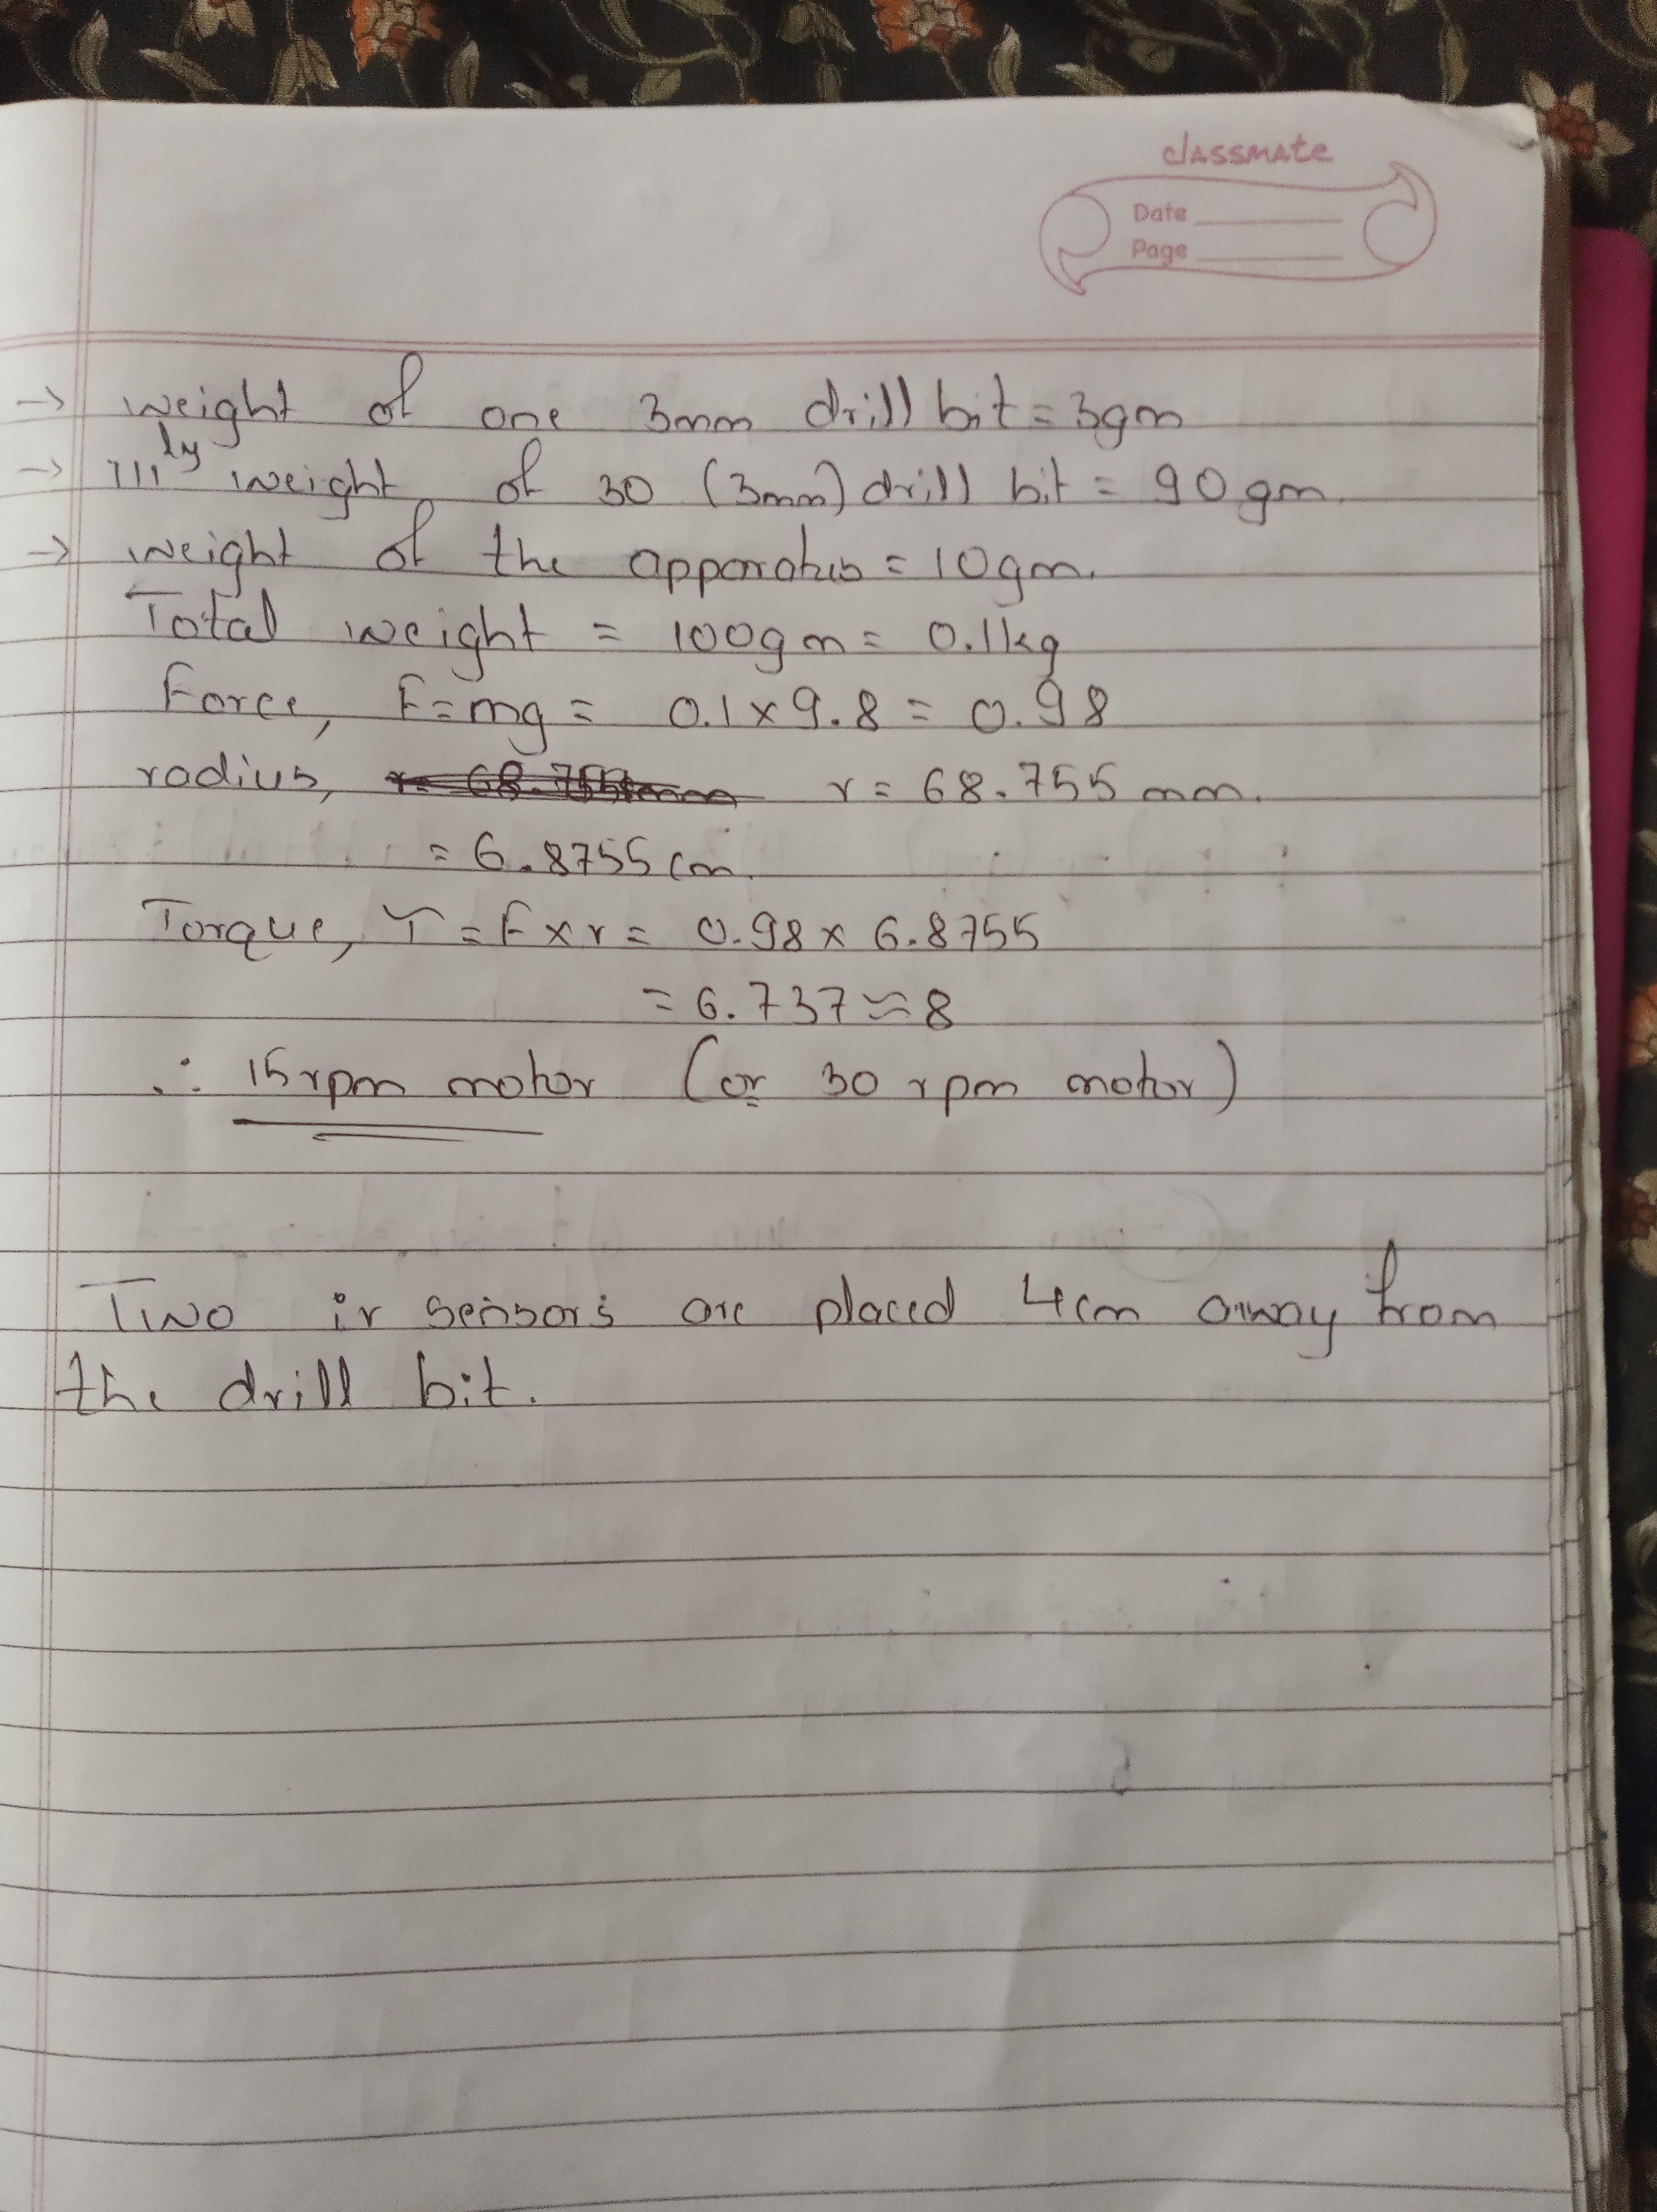 classmate
Date
Page
→ weight of one 3mm drill bit = 3gm
→ |||ly weight of 30 (3mm) drill bit = 90 gm.
→ weight of the apparatus = 10gm.
Total weight = 100gm = 0.1kg
Force, F = mg = 0.1 x 9.8 = 0.98
radius, r = 68.755 mm.
= 6.8755 cm.
Torque, T = F x r = 0.98 x 6.8755
= 6.737 ≈ 8
∴ 15 rpm motor (or 30 rpm motor)
Two ir sensors are placed 4cm away from
the drill bit.